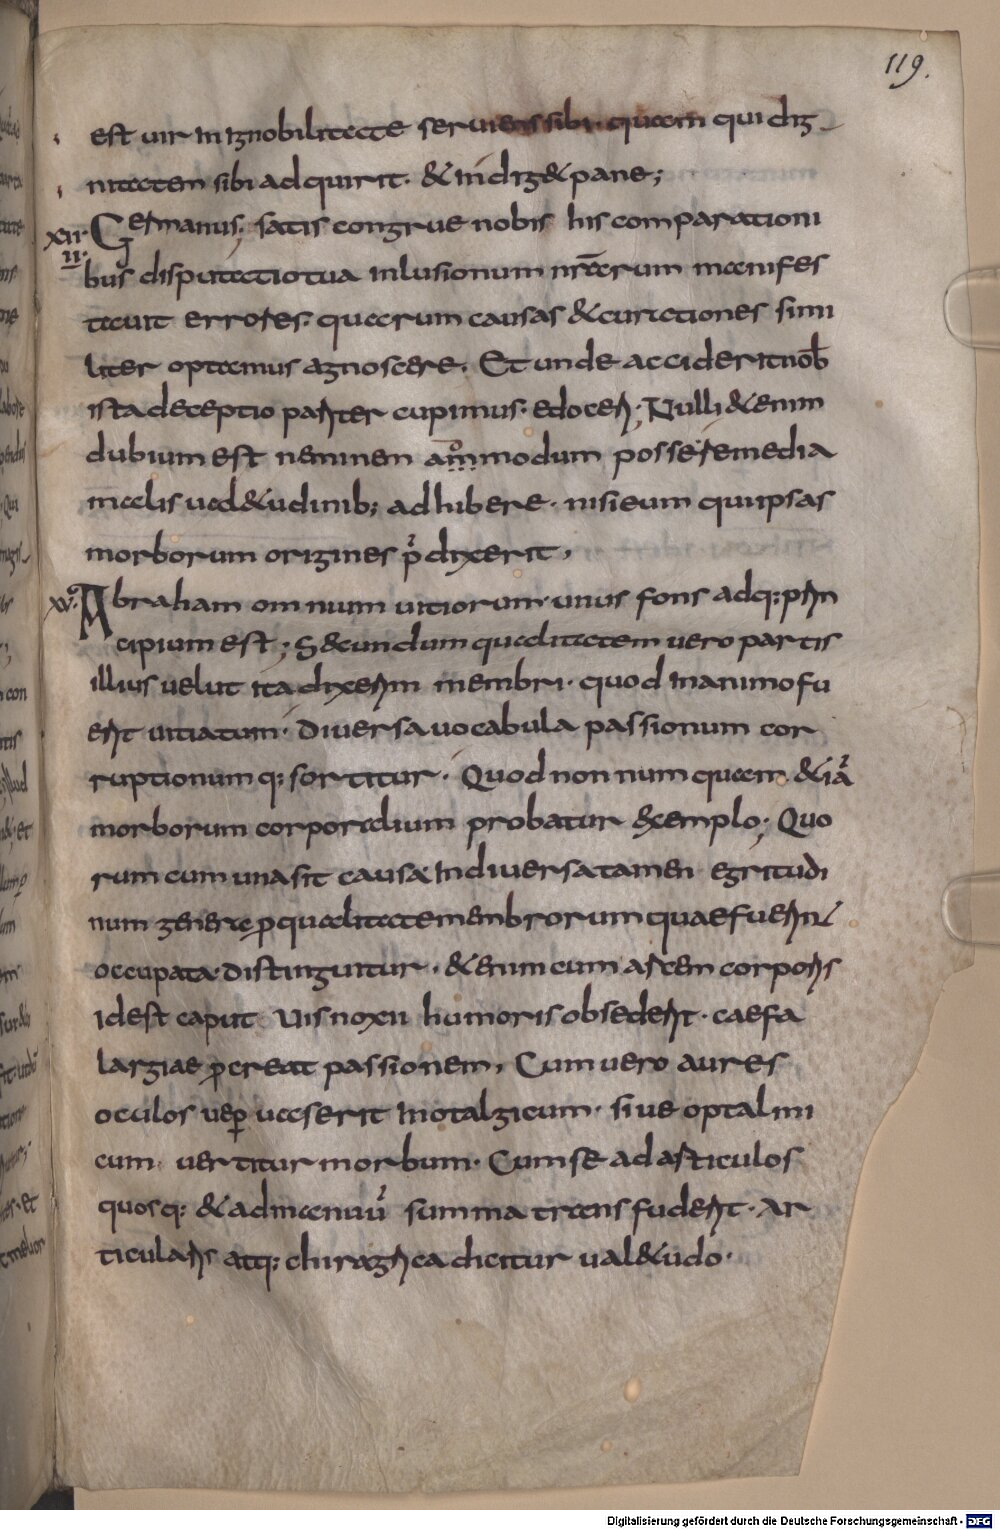 119.
est uir in ignobilitate seruiens sibi. quam qui dig
nitatem sibi adquirit. & indig& pane;
xii. Germanus; satis congrue nobis his comparationi
ii. bus disputatio tua inlusionum nr̄arum manifes
tauit errores. quarum causas & curationes simi
liter optamus agnoscere. Et unde acciderit nob̄
ista deceptio pariter cupimus. edoceri; Nulli &enim
dubium est neminem ammodum posse remedia
malis ual&udinib; adhibere. nisi eum qui ipsas
morborum origines p̄dixerit,
xv. Abraham omnium uitiorum. unus fons adq; prin
cipium est; S&cundum qualitatem uero partis
illius uelut ita dixerim membri. quod in animo fu
erit uitiatum. Diuersa uocabula passionum cor
ruptionumq; sortitur. Quod nonnumquam. &iā
morborum corporalium probatur exemplo; Quo
rum cum una sit causa. In diuersa tamen egritudi
num genera p qualitate membrorum quae fuerint
occupata. distinguitur. &enim cum arcem corporis
idest caput uis noxii humoris obsederit. caefa
largiae p creat passionem, Cum uero aures
oculos uep uaserit inotalgicum. siue optalmi
cum. uertitur morbum. Cum se ad articulos
quosq; & ad manuū summa transfuderit. Ar
ticularis atq; chiragrica dicitur ual&udo.
Digitalisierung gefördert durch die Deutsche Forschungsgemeinschaft - DFG